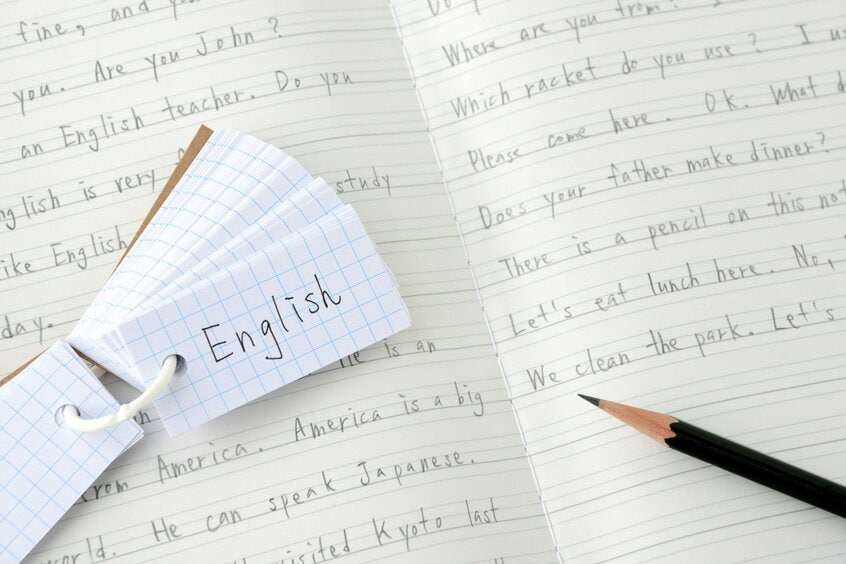 fine, and you
you. Are you John?
an English teacher. Do you
English is very
study
like English
day.
He is an
from America. America is a big
world. He can speak Japanese.
visited Kyoto last
English
Do
Where are you from? I
Which racket do you use? I us
Please come here. OK. What d
Does your father make dinner?
There is a pencil on this not
Let's eat lunch here. No,
We clean the park. Let's